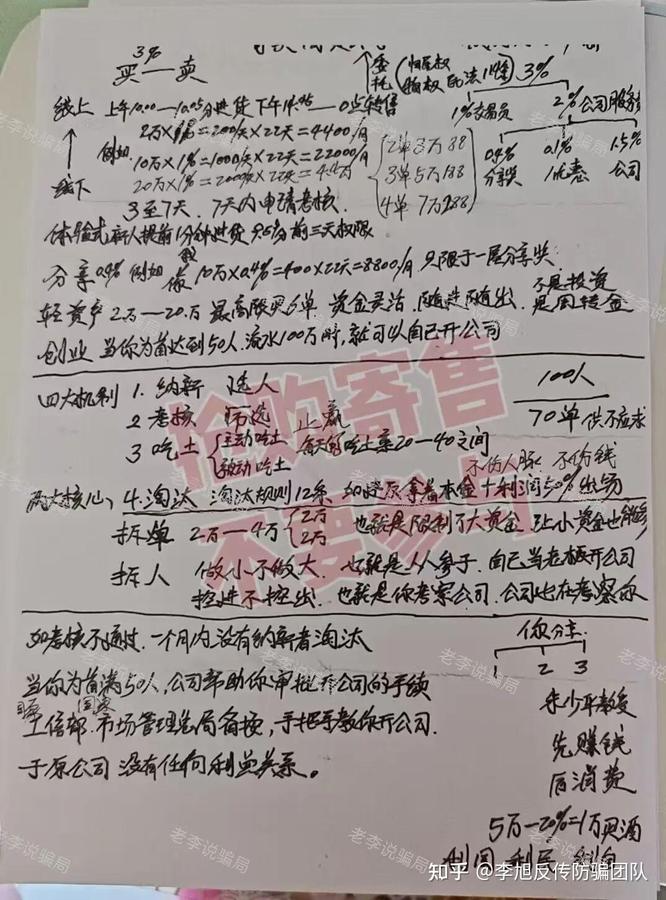 3%
买一卖
委托(归属权
物权 民法114条) 3%
1%交易员 2%公司服务
0.4% 分享奖 0.1% 优惠 1.5% 公司
线上 上午10:00—10:05分进货下午14:45—0点转售
2万×1%=200/天×22天=4400/月
例如 10万×1%=1000/天×22天=22000/月
20万×1%=2000/天×22天=4.4万
线下
2单3万88
3单5万188
4单7万288
3至7天、7天内申请考核、
体验式新人提前1分钟进货 前三天权限
分享0.4% 例如 我做 10万×0.4%=400×22天=8800/月 只限于一层分享奖
轻资产 2万—20万 最高限买6单 资金灵活、随进随出、不是投资 是周转金
创业 当你为首达到50人、流水100万时,就可以自己开公司
四大机制 1. 纳新 选人
2 考核 筛选 止赢
3 吃土 {主动吃土 被动吃土 每天的吃土率20—40之间
100人
70单 供不应求
不伤人脉 不伤钱
两大核心 4. 淘汰 淘汰规则12条 拿着本金+利润50%出场
拆单 2万—4万{2万 2万 也就是限制了大资金 让小资金也能参
拆人 做小不做大、也就是人人参于、自己当老板开公司
控进不控出、也就是你考察公司、公司也在考察你
如考核不通过、一个月内没有纳新者淘汰
当你为首满50人,公司帮助你审批开公司的手续
国家工信部、国家市场管理总局备案,手把手教你开公司、
于原公司没有任何利益关系。
你分享
1 2 3
朱少平教授
先赚钱
后消费
5万—20%=1万买酒
利国 利民 利自
抢购寄售
不要参与
老李说骗局
知乎 @李旭反传防骗团队